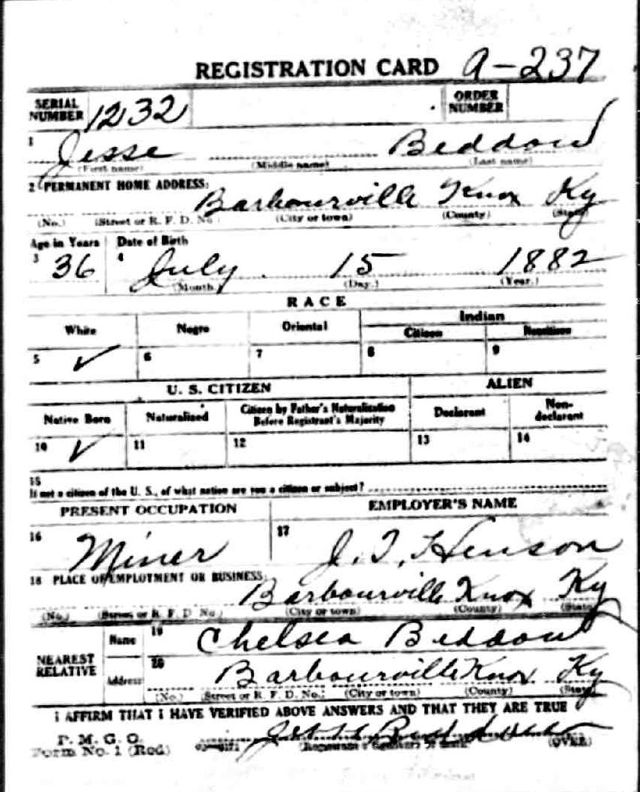 REGISTRATION CARD A-237
SERIAL NUMBER 1232 ORDER NUMBER
1 Jesse Beddow
(First name) (Middle name) (Last name)
2 PERMANENT HOME ADDRESS:
Barbourville Knox Ky
(No.) (Street or R. F. D. No.) (City or town) (County) (State)
Age in Years Date of Birth
3 36 4 July 15 1882
(Month.) (Day.) (Year.)
RACE
White Negro Oriental Indian
Citizen
5 ✓ 6 7 8 9
U. S. CITIZEN ALIEN
Native Born Naturalized Citizen by Father's Naturalization Before Registrant's Majority Declarant Non-declarant
10 ✓ 11 12 13 14
15
If not a citizen of the U. S., of what nation are you a citizen or subject?
PRESENT OCCUPATION EMPLOYER'S NAME
16 Miner 17 J. T. Henson
18 PLACE OF EMPLOYMENT OR BUSINESS:
Barbourville Knox Ky
(No.) (Street or R. F. D. No.) (City or town) (County) (State)
NEAREST RELATIVE
Name 19 Chelsea Beddow
Address 20 Barbourville Knox Ky
(No.) (Street or R. F. D. No.) (City or town) (County) (State)
I AFFIRM THAT I HAVE VERIFIED ABOVE ANSWERS AND THAT THEY ARE TRUE
P. M. G. O.
Form No. 1 (Red) (Registrant's signature or mark) (OVER)